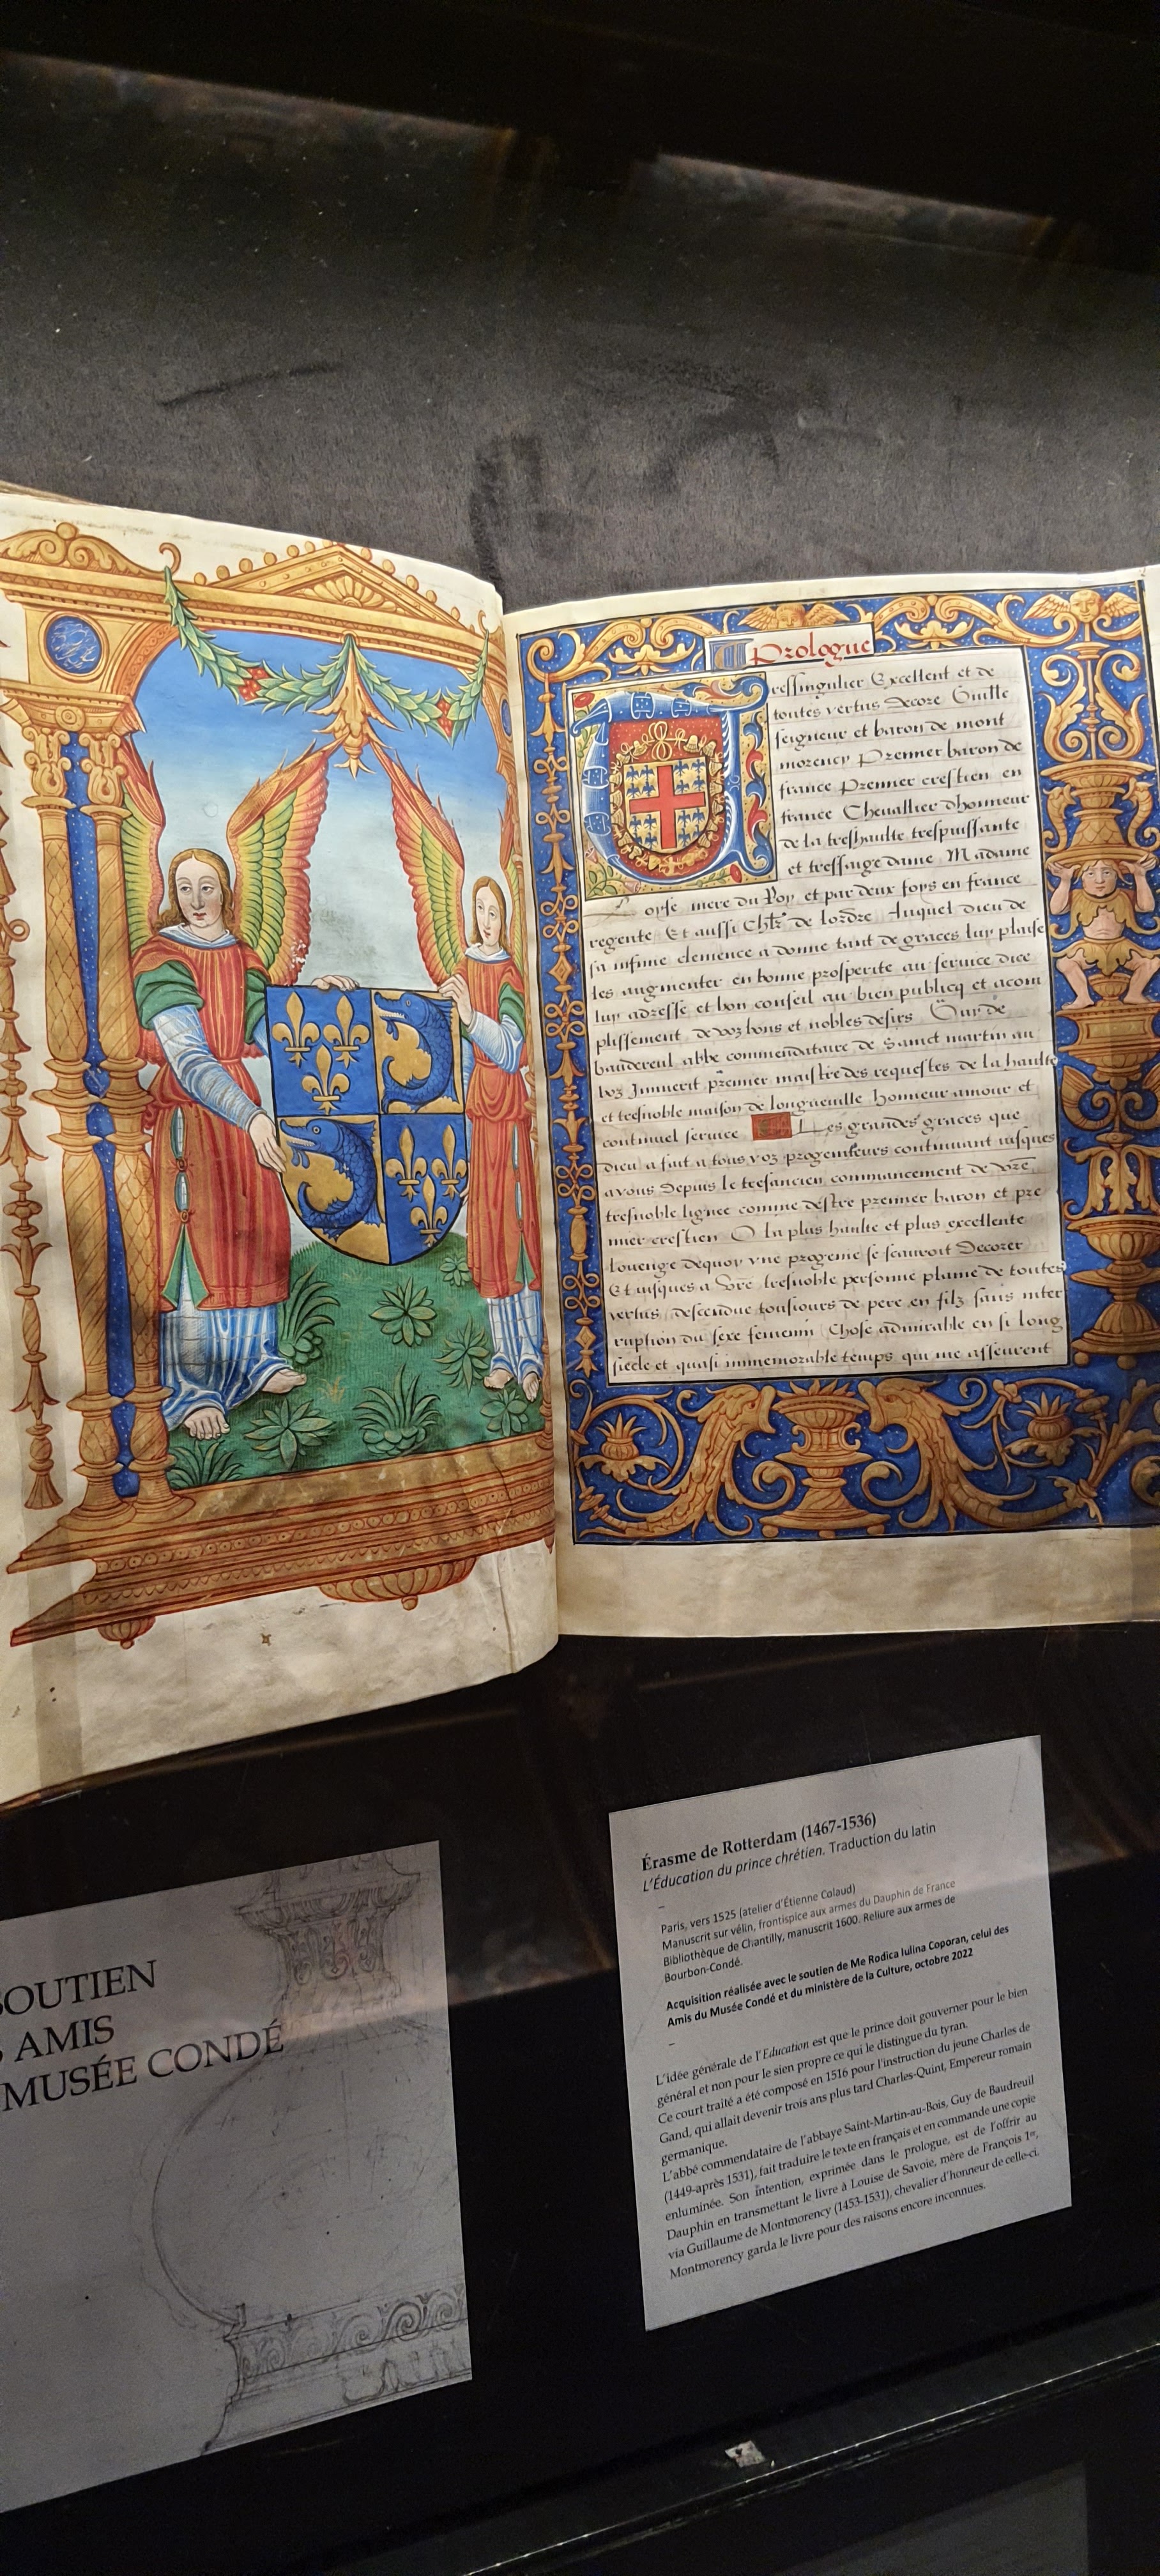 Prologue
Tressingulier Excellent et de
toutes vertus decore Guille
seigneur et baron de mont
morency Premier baron de
france Premier crestien en
france Chevallier dhonneur
de la treshaulte trespuissante
et tressaige dame Madame
oyse mere du Roy et par deux foys en france
regente Et aussi Chlr de lordre Auquel dieu de
sa infinie clemence a donne tant de graces luy plaise
les augmenter en bonne prosperite au service dice
luy adresse et bon conseil au bien publicq et acom
plissement de voz bons et nobles desirs Guy de
baudereul abbe commendataire de Sainct martin au
boz premier maistre des requestes de la haulte
et tresnoble maison de longueville honneur amour et
continuel service Les grandes graces que
dieu a fait a tous voz progeniteurs continuant iusques
avous Depuis le tresancien commancement de vre
tresnoble lignee comme destre premier baron et pre
mier crestien O la plus haulte et plus excellente
louenge dequoy vne progenie se scauroit Decorer
Et iusques a vre tresnoble personne plaine de toutes
vertus descendue tousiours de pere en filz sans inter
ruption du sexe feminin Chose admirable en si long
siecle et quasi immemorable temps qui me asseurent
SOUTIEN
AMIS
MUSÉE CONDÉ
Érasme de Rotterdam (1467-1536)
L'Éducation du prince chrétien. Traduction du latin
–
Paris, vers 1525 (atelier d'Étienne Colaud)
Manuscrit sur vélin, frontispice aux armes du Dauphin de France
Bibliothèque de Chantilly, manuscrit 1600. Reliure aux armes de
Bourbon-Condé.
Acquisition réalisée avec le soutien de Me Rodica Iulina Coporan, celui des
Amis du Musée Condé et du ministère de la Culture, octobre 2022
–
L'idée générale de l'Education est que le prince doit gouverner pour le bien
général et non pour le sien propre ce qui le distingue du tyran.
Ce court traité a été composé en 1516 pour l'instruction du jeune Charles de
Gand, qui allait devenir trois ans plus tard Charles-Quint, Empereur romain
germanique.
L'abbé commendataire de l'abbaye Saint-Martin-au-Bois, Guy de Baudreuil
(1449-après 1531), fait traduire le texte en français et en commande une copie
enluminée. Son intention, exprimée dans le prologue, est de l'offrir au
Dauphin en transmettant le livre à Louise de Savoie, mère de François 1er,
via Guillaume de Montmorency (1453-1531), chevalier d'honneur de celle-ci.
Montmorency garda le livre pour des raisons encore inconnues.